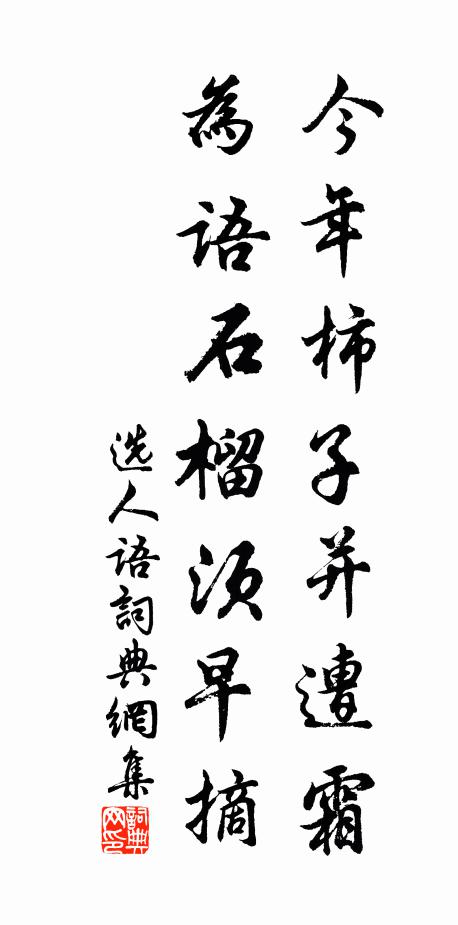 今年柿子并遭霜
為语石榴须早摘
选人语詞典網集
詞典网印